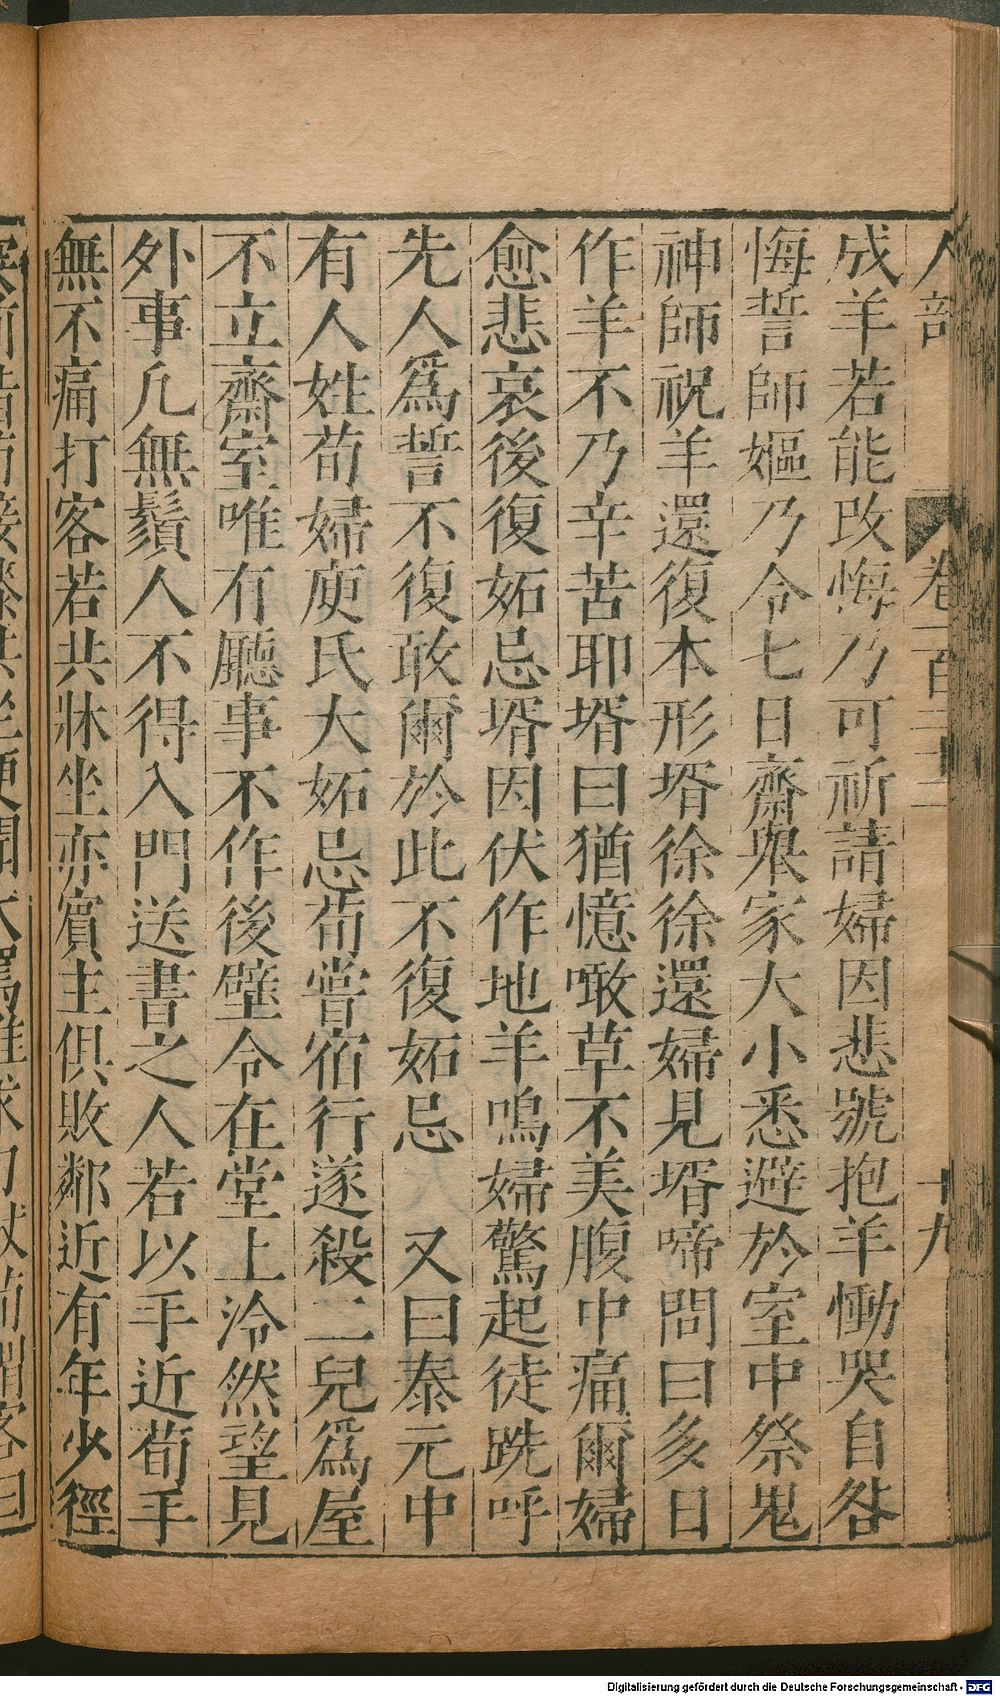 人部 卷一百三十三 十九
成羊若能改悔乃可祈請婦因悲號抱羊慟哭自咎
悔誓師嫗乃令七日齋舉家大小悉避於室中祭鬼
神師祝羊還復本形壻徐徐還婦見壻啼問曰多日
作羊不乃辛苦耶壻曰猶憶噉草不美腹中痛爾婦
愈悲哀後復妬忌壻因伏作地羊鳴婦驚起徒跣呼
先人爲誓不復敢爾於此不復妬忌　又曰泰元中
有人姓荀婦庾氏大妬忌荀嘗宿行遂殺二兒爲屋
不立齋室唯有廳事不作後壁令在堂上泠然望見
外事凡無鬚人不得入門送書之人若以手近荀手
無不痛打客若共牀坐亦賓主俱敗鄰近有年少徑
Digitalisierung gefördert durch die Deutsche Forschungsgemeinschaft - DFG